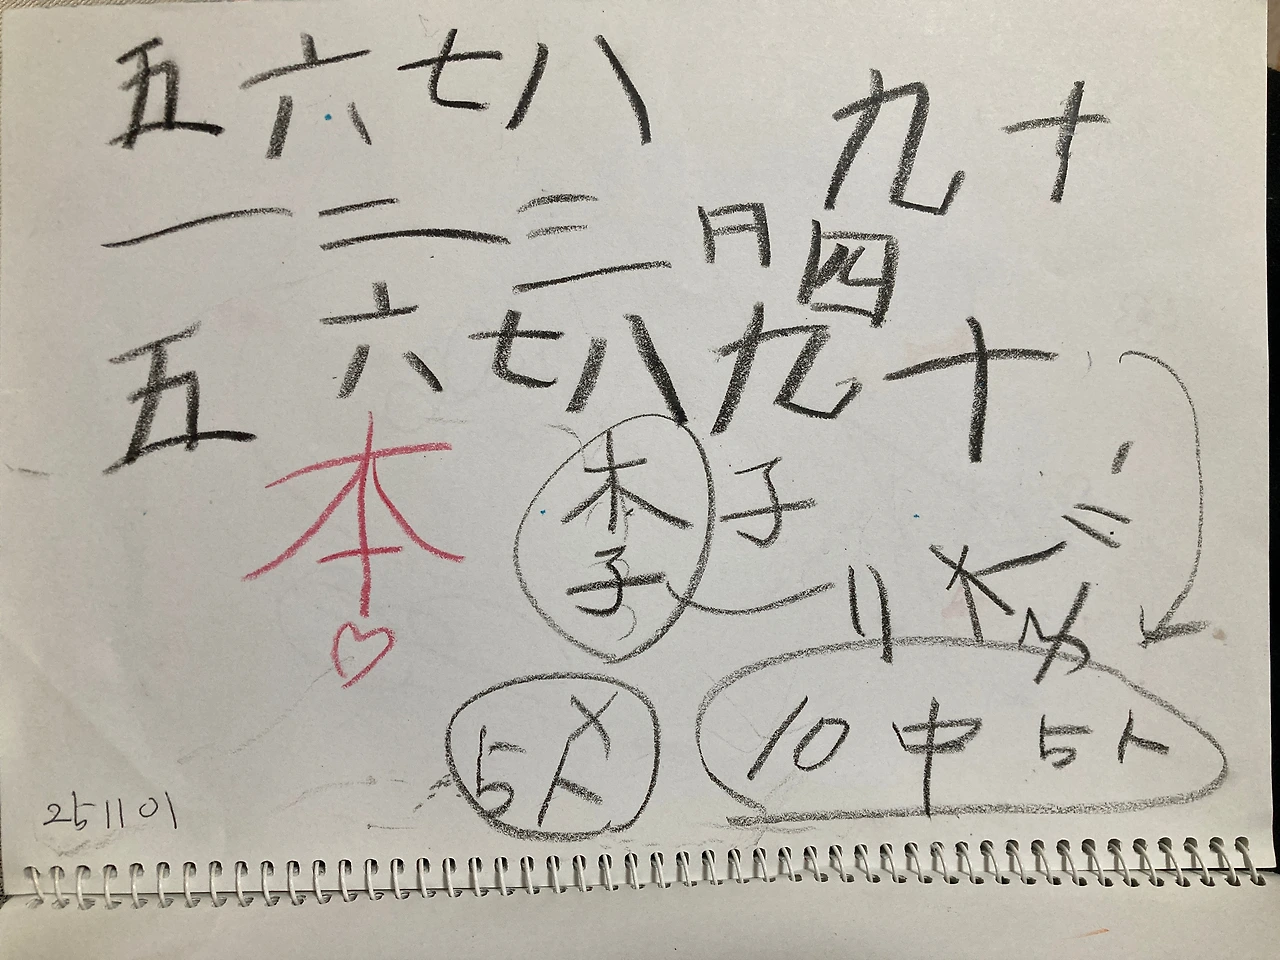 五六七八 九十
一二三月四
五六七八九十
本 木子 子
5人 10中5人
251101